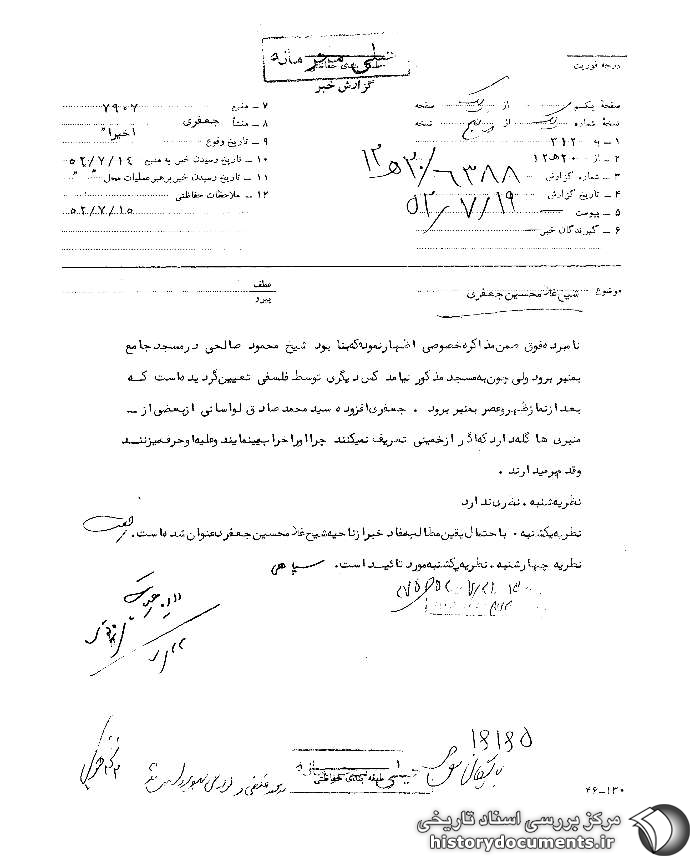 خیلی محرمانه
طبقه بندی حفاظتی
گزارش خبر
درجه فوریت
صفحهٔ یکم از یک صفحه
نسخهٔ شماره یک از پنج نسخه
۱ – به ۳۱۲
۲ – از ۲۰ ه‍ ۱۲
۳ – شماره گزارش ۶۳۸۸ / ۲۰ ه‍ ۱۲
۴ – تاریخ گزارش ۵۲/۷/۱۹
۵ – پیوست
۶ – گیرندگان خبر
۷ – منبع ۷۹۰۷
۸ – منشأ جعفری
۹ – تاریخ وقوع اخیرا"
۱۰ – تاریخ رسیدن خبر به منبع ۵۲/۷/۱۴
۱۱ – تاریخ رسیدن خبر برهبر عملیات محل " "
۱۲ – ملاحظات حفاظتی
۵۲/۷/۱۵
موضوع شیخ غلامحسین جعفری
عطف
پیرو
نامبرده فوق ضمن مذاکره خصوصی اظهار نموده که بنا بود شیخ محمود صالحی در مسجد جامع
بمنبر برود ولی چون به مسجد مذکور نیامد کس دیگری توسط فلسفی تعیین گردیده است که
بعد از نماز ظهر و عصر به منبر برود . جعفری افزوده سید محمد صادق لواسانی از بعضی از –
منبری ها گله دارد که اگر از خمینی تعریف نمیکنند چرا او را خراب مینمایند و علیه او حرف میزنند
و قدم بر میدارند .
نظریه شنبه . نظری ندارد
نظریه یکشنبه . با احتمال یقین مطالب مفاد خبر از ناحیه شیخ غلامحسین جعفری عنوان شده است .
نظریه چهارشنبه . نظریه یکشنبه مورد تائید است . سپاهی
۱۶۱۶۵
بایگانی شود
خیلی محرمانه
طبقه بندی حفاظتی
۴۶–۱۳۰
مرکز بررسی اسناد تاریخی
historydocuments.ir